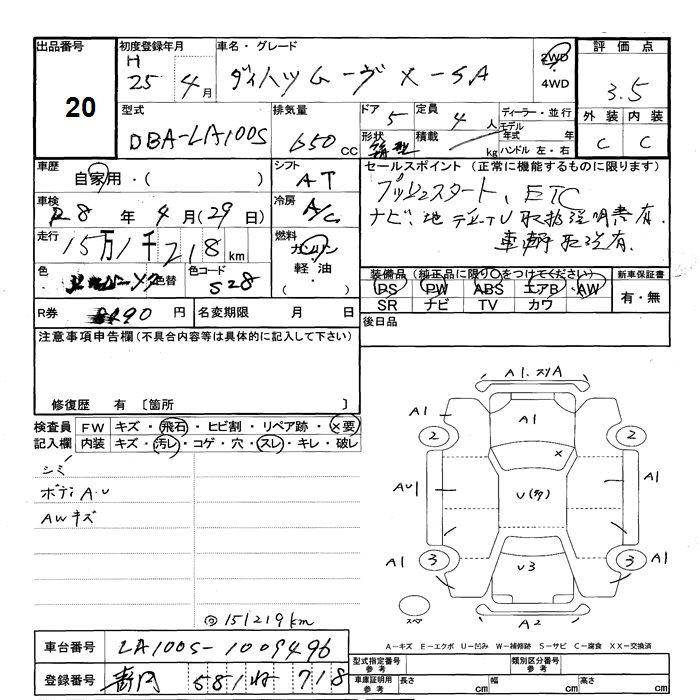 出品番号
20
初度登録年月
H 25年 4月
車名・グレード
ダイハツ ムーヴ X-SA
2WD
4WD
評価点
3.5
外装 内装
C C
型式
DBA-LA100S
排気量
650 cc
ドア
5
形状
定員
4人
積載
kg
ディーラー・並行
モデル年式 年
ハンドル 左・右
車歴
自家用・( )
シフト
AT
セールスポイント (正常に機能するものに限ります)
プッシュスタート、ETC
ナビ、地デジTV 取扱説明書有.
車輌取説有.
車検
R8年 4月(29日)
冷房
A/C
走行
15万1千218km
燃料
ガソリン
軽油・
( )
色
色替
色コード
S28
装備品 (純正品に限り○をつけてください)
PS PW ABS エアB AW
SR ナビ TV カワ
新車保証書
有・無
R券
円
名変期限 月 日
後日品
注意事項申告欄(不具合内容等は具体的に記入して下さい)
修復歴 有 〔箇所 〕
検査員記入欄
FW キズ・飛石・ヒビ割・リペア跡・×要
内装 キズ・汚レ・コゲ・穴・スレ・キレ・破レ
シミ
ボディA・U
AWキズ
@151219km
A1.スリA
A1 A1
2 A1 2
×
AU1 U(多) A1
A1 3 U3 3 A1
スペア
A2
A−キズ E−エクボ U−凹み W−補修跡 S−サビ C−腐食 XX−交換済
車台番号
LA100S-1009496
登録番号
581 718
型式指定番号参考
類別区分番号参考
車庫証明用参考
長さ cm 幅 cm 高さ cm